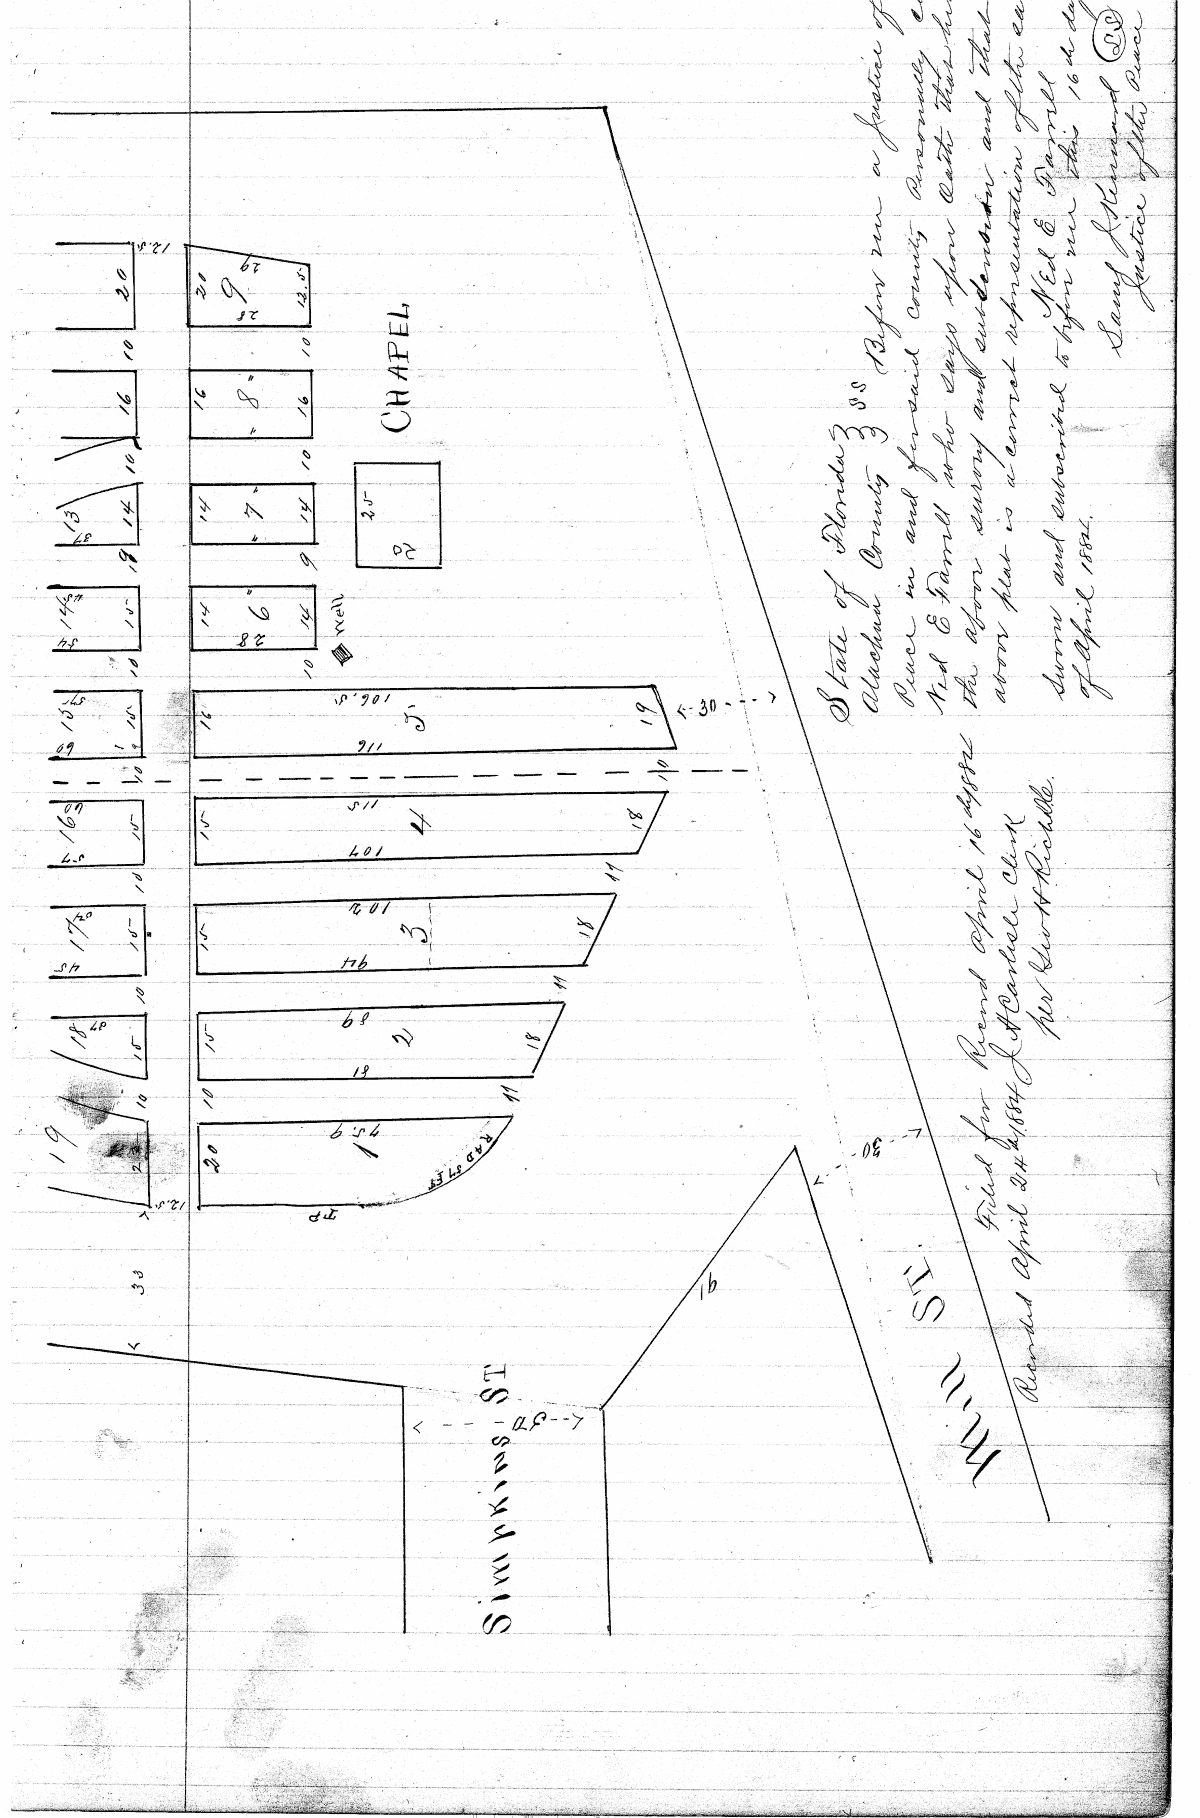 20
10
16
10
13
37
14
9
14
15
54
10
15
60
15
10
16
60
57
15
10
17
45
15
10
18
37
15
10
19
12.5
33
12.5
20
9
29
28
12.5
10
16
8
" "
16
10
14
7
" "
14
9
14
6
"
28
14
10
Well
CHAPEL
25
16
5
106.5
116
19
30
10
15
4
115
107
18
11
15
3
102
94
18
11
15
2
89
81
18
11
10
20
1
75.9
RAD 37 FT
Simpkins ST
30
91
30
Hill ST.
State of Florida }
Alachua County } SS Before me a Justice of
Peace in and for said county Personally
Ned E Farrell who says upon Oath that
the above survey and subdivision and that
above plat is a correct representation of the
Ned E Farrell
Sworn and subscribed to before me this 16th
of April 1884.
Saml J Kennard (LS)
Justice of the Peace
Filed for Record April 16 1884
Recorded April 24 1884 J A Carlisle Clerk
per Geo H